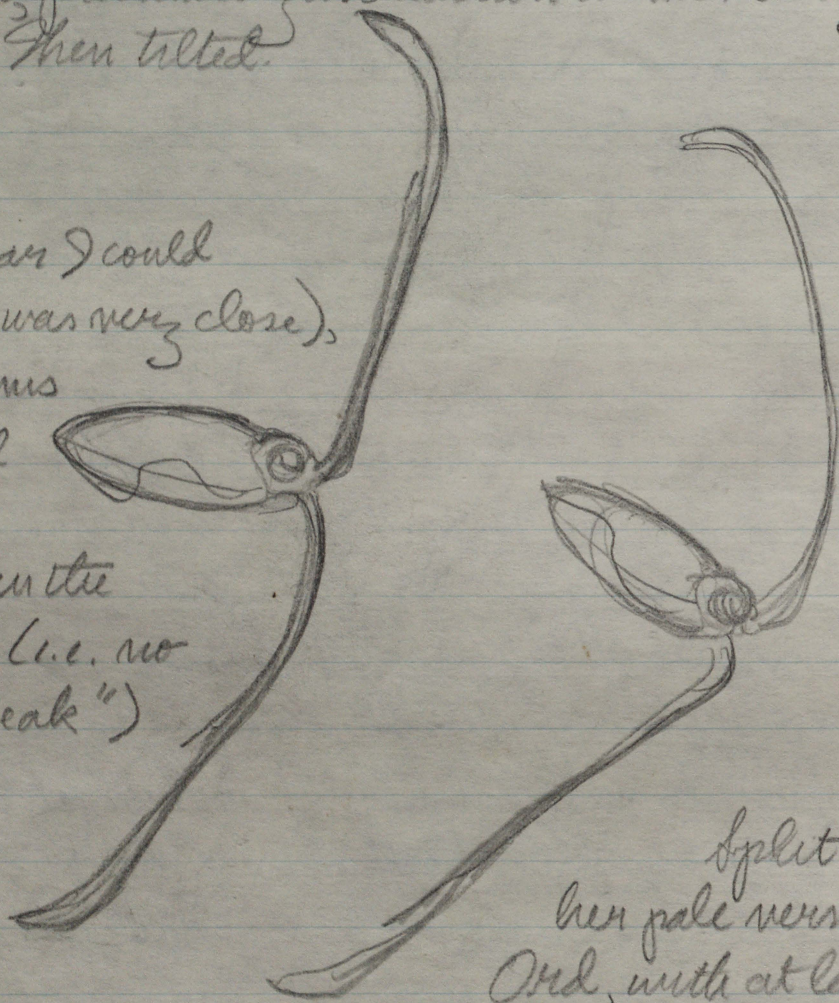 Then tilted.
I could
was very close),
the
(i.e. no
eak")
Split
her pale vers
Ord, with at l